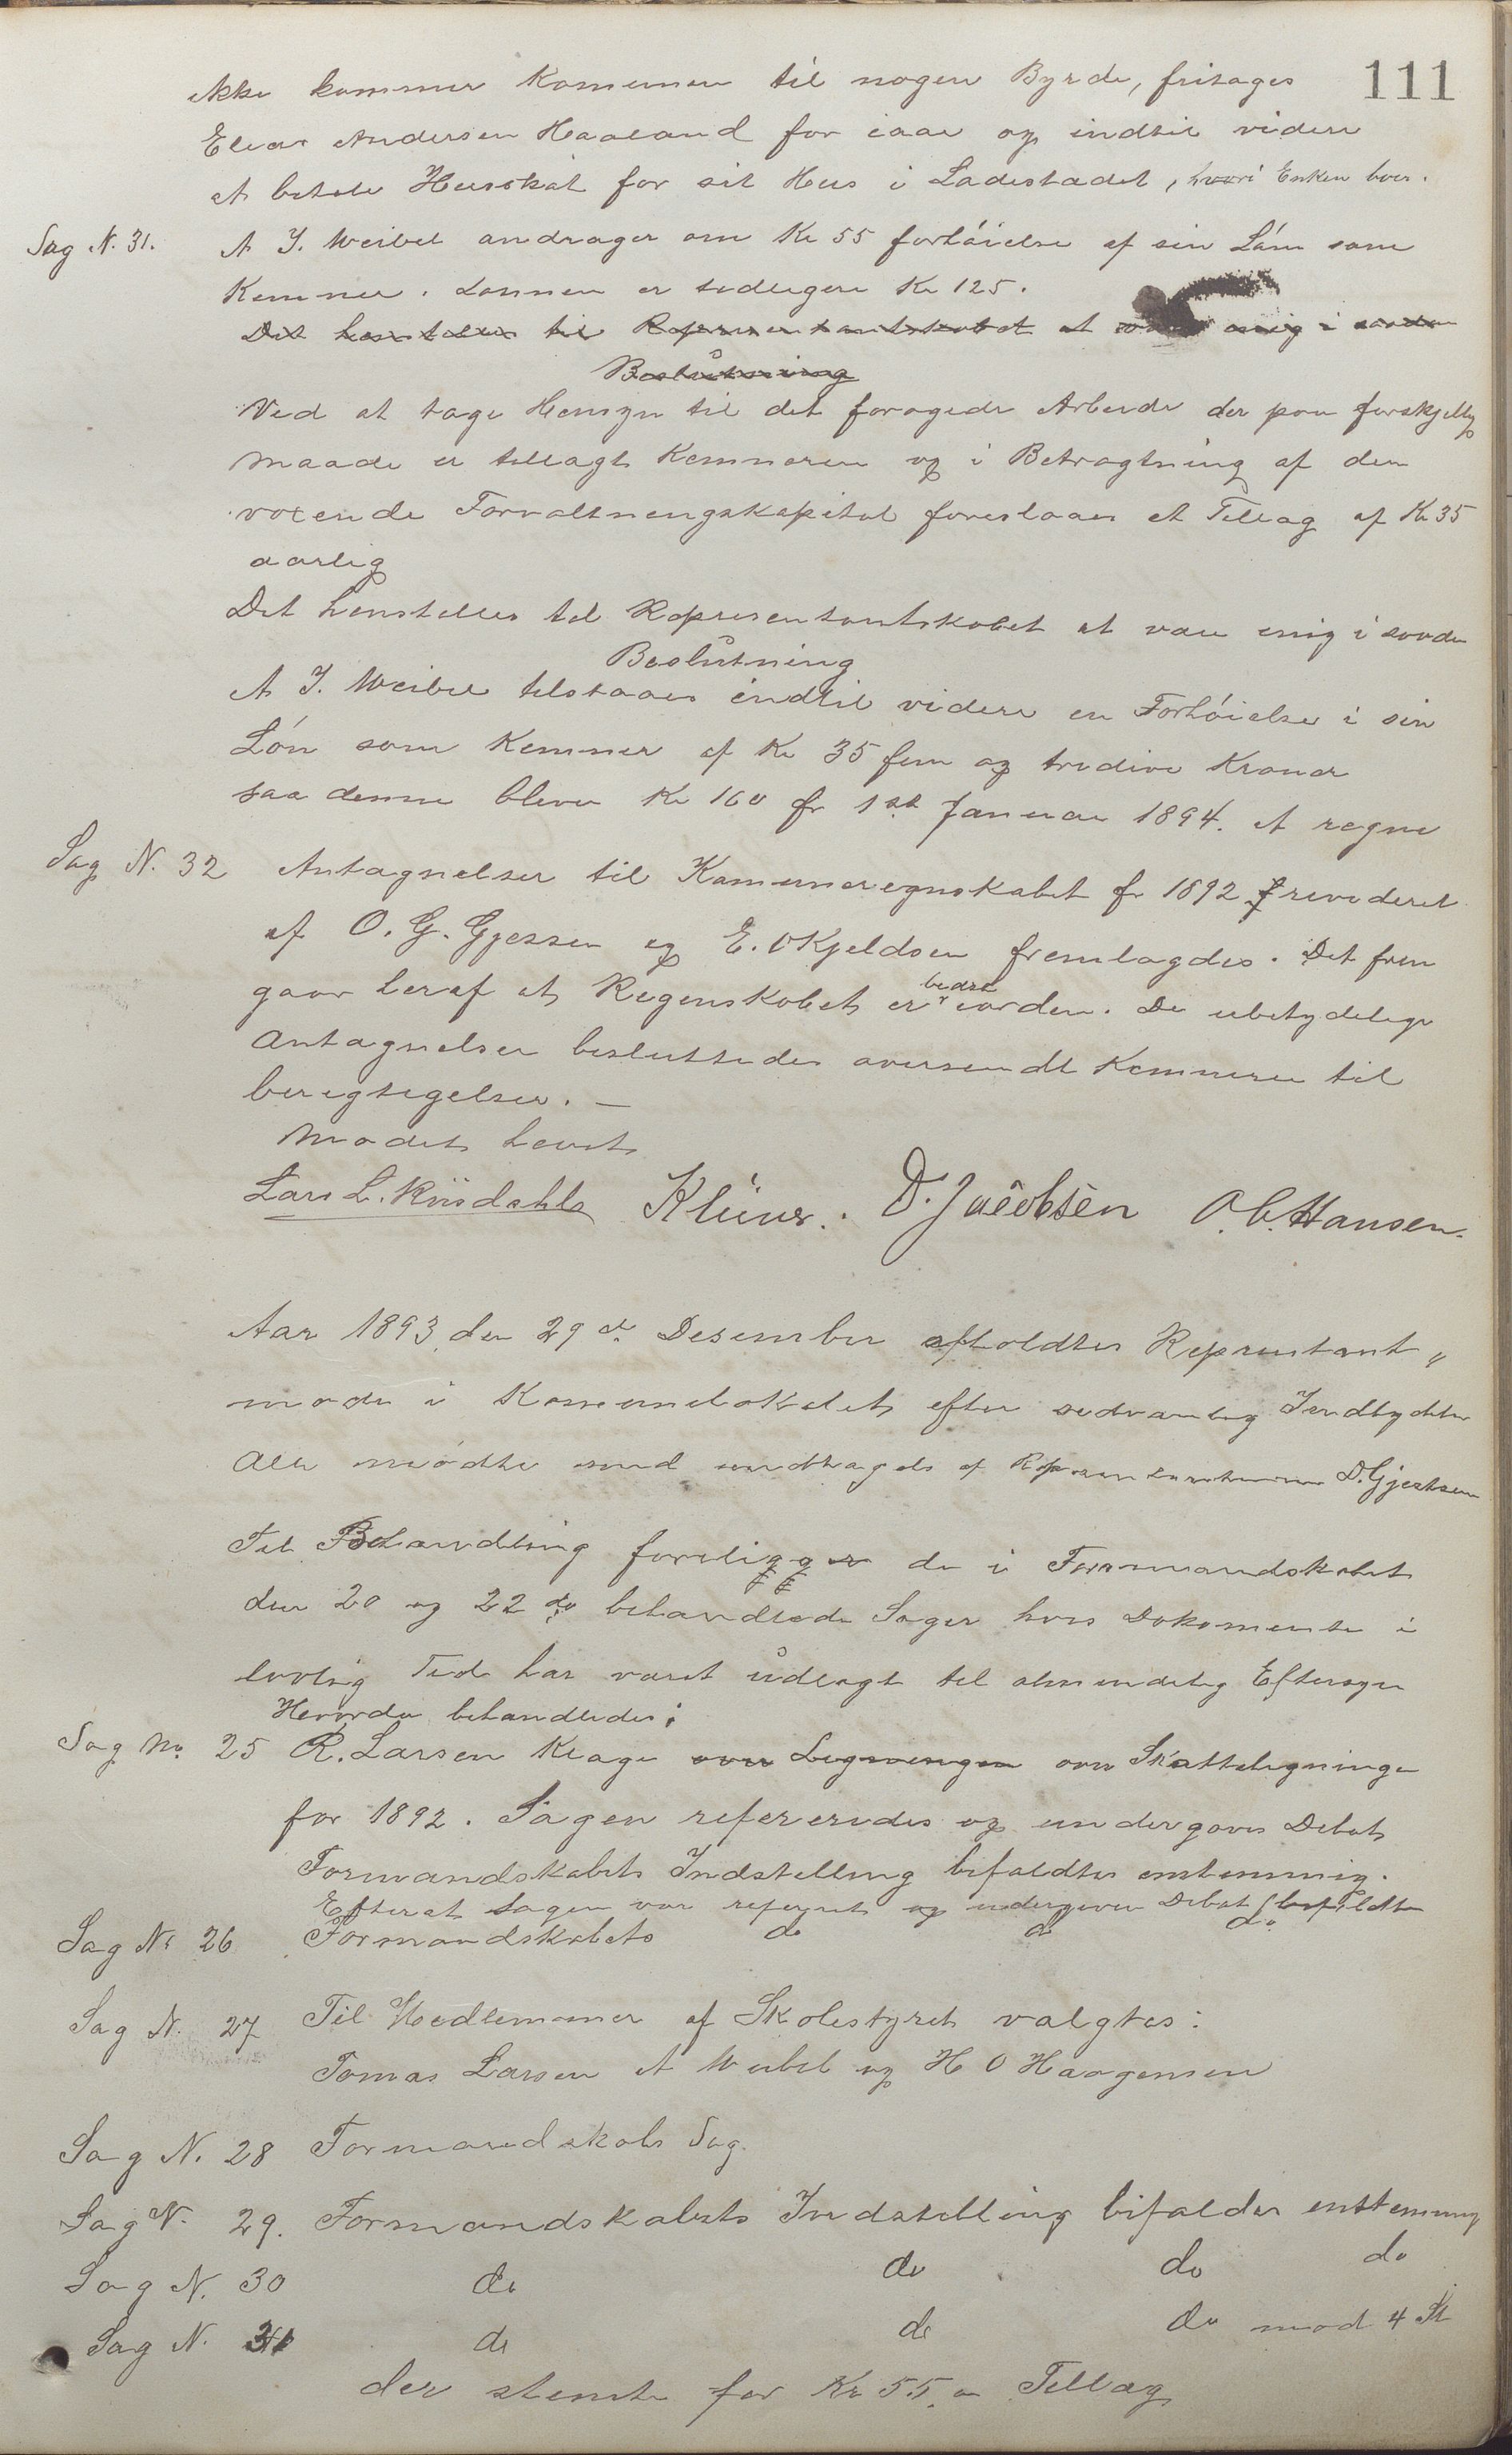 111
ikke kommer Komunen til nogen Byrde, fritages
Elias Andersen Haaland for iaar og indtil videre
at betale Husskat for sit Hus i Ladestadet, hvori Enken boer.
Sag N. 31. A J. Weibel andrager om Kr 55 forhöielse af sin Lön som
Kemner. Lönnen er tidligere Kr 125.
Det henstilles til Representantskabet at være enig i saadan
Beslutning
Ved at tage Hensyn til det forøgede Arbeide der paa forskjellig
Maade er tillagt Kemneren og i Betragtning af den
voxende Forvaltningskapital foreslaaes et Tillæg af Kr 35
aarlig
Det henstilles til Representantskabet at være enig i saadan
Beslutning
A J. Weibel tilstaaes indtil videre en Forhöielse i sin
Lön som Kemner af Kr 35 fem og tredive Kroner
saa denne bliver Kr 160 fr 1ste Januar 1894. at regne
Sag N. 32 Antagnelser til Komuneregnskabet fr 1892 revideret
af O. G. Gjessen og E. Kjeldsen fremlagdes. Det frem
gaar heraf at Regenskabet er bedst iorden. De ubetydelige
Antagnelser besluttedes oversendt Kemneren til
berigtigelser. —
Mødet hevet
Lars L. Riisdahl Klüver. D. Jacobsen O. C. Hansen.
Aar 1893 den 29de Desember afholdtes Reprentant „
møde i Komunelokalet efter sedvanlig Indbydelse
Alle mødte med undtagelse af Representanterne D. Gjertsen
Til Behandling foreligger de i Formandskabet
den 20 og 22 do behandlede Sager hvis Dokomenter i
lovlig Tid har været udlagt til almindelig Eftersyn
Hvorda behandledes:
Sag No. 25 R. Larsen Klage over Ligningen over Skatteligningen
for 1892. Sagen refereredes og undergaves Debat
Formandskabets Indstilling bifaldtes enstemmig.
Efterat Sagen var referert og undergiven Debat bifaldtes
Sag Nr 26 Formandskabets do do do
Sag N. 27 Til Medlemmer af Skolestyret valgtes:
Tomas Larsen A Weibel og H O Haagensen
Sag N. 28 Formandskabs Sag.
Sag N. 29. Formandskabets Indstilling bifaldes enstemmig
Sag N. 30 do do do do
Sag N. 31 do do do mod 4 St
der stemte for Kr 55,- Tillæg